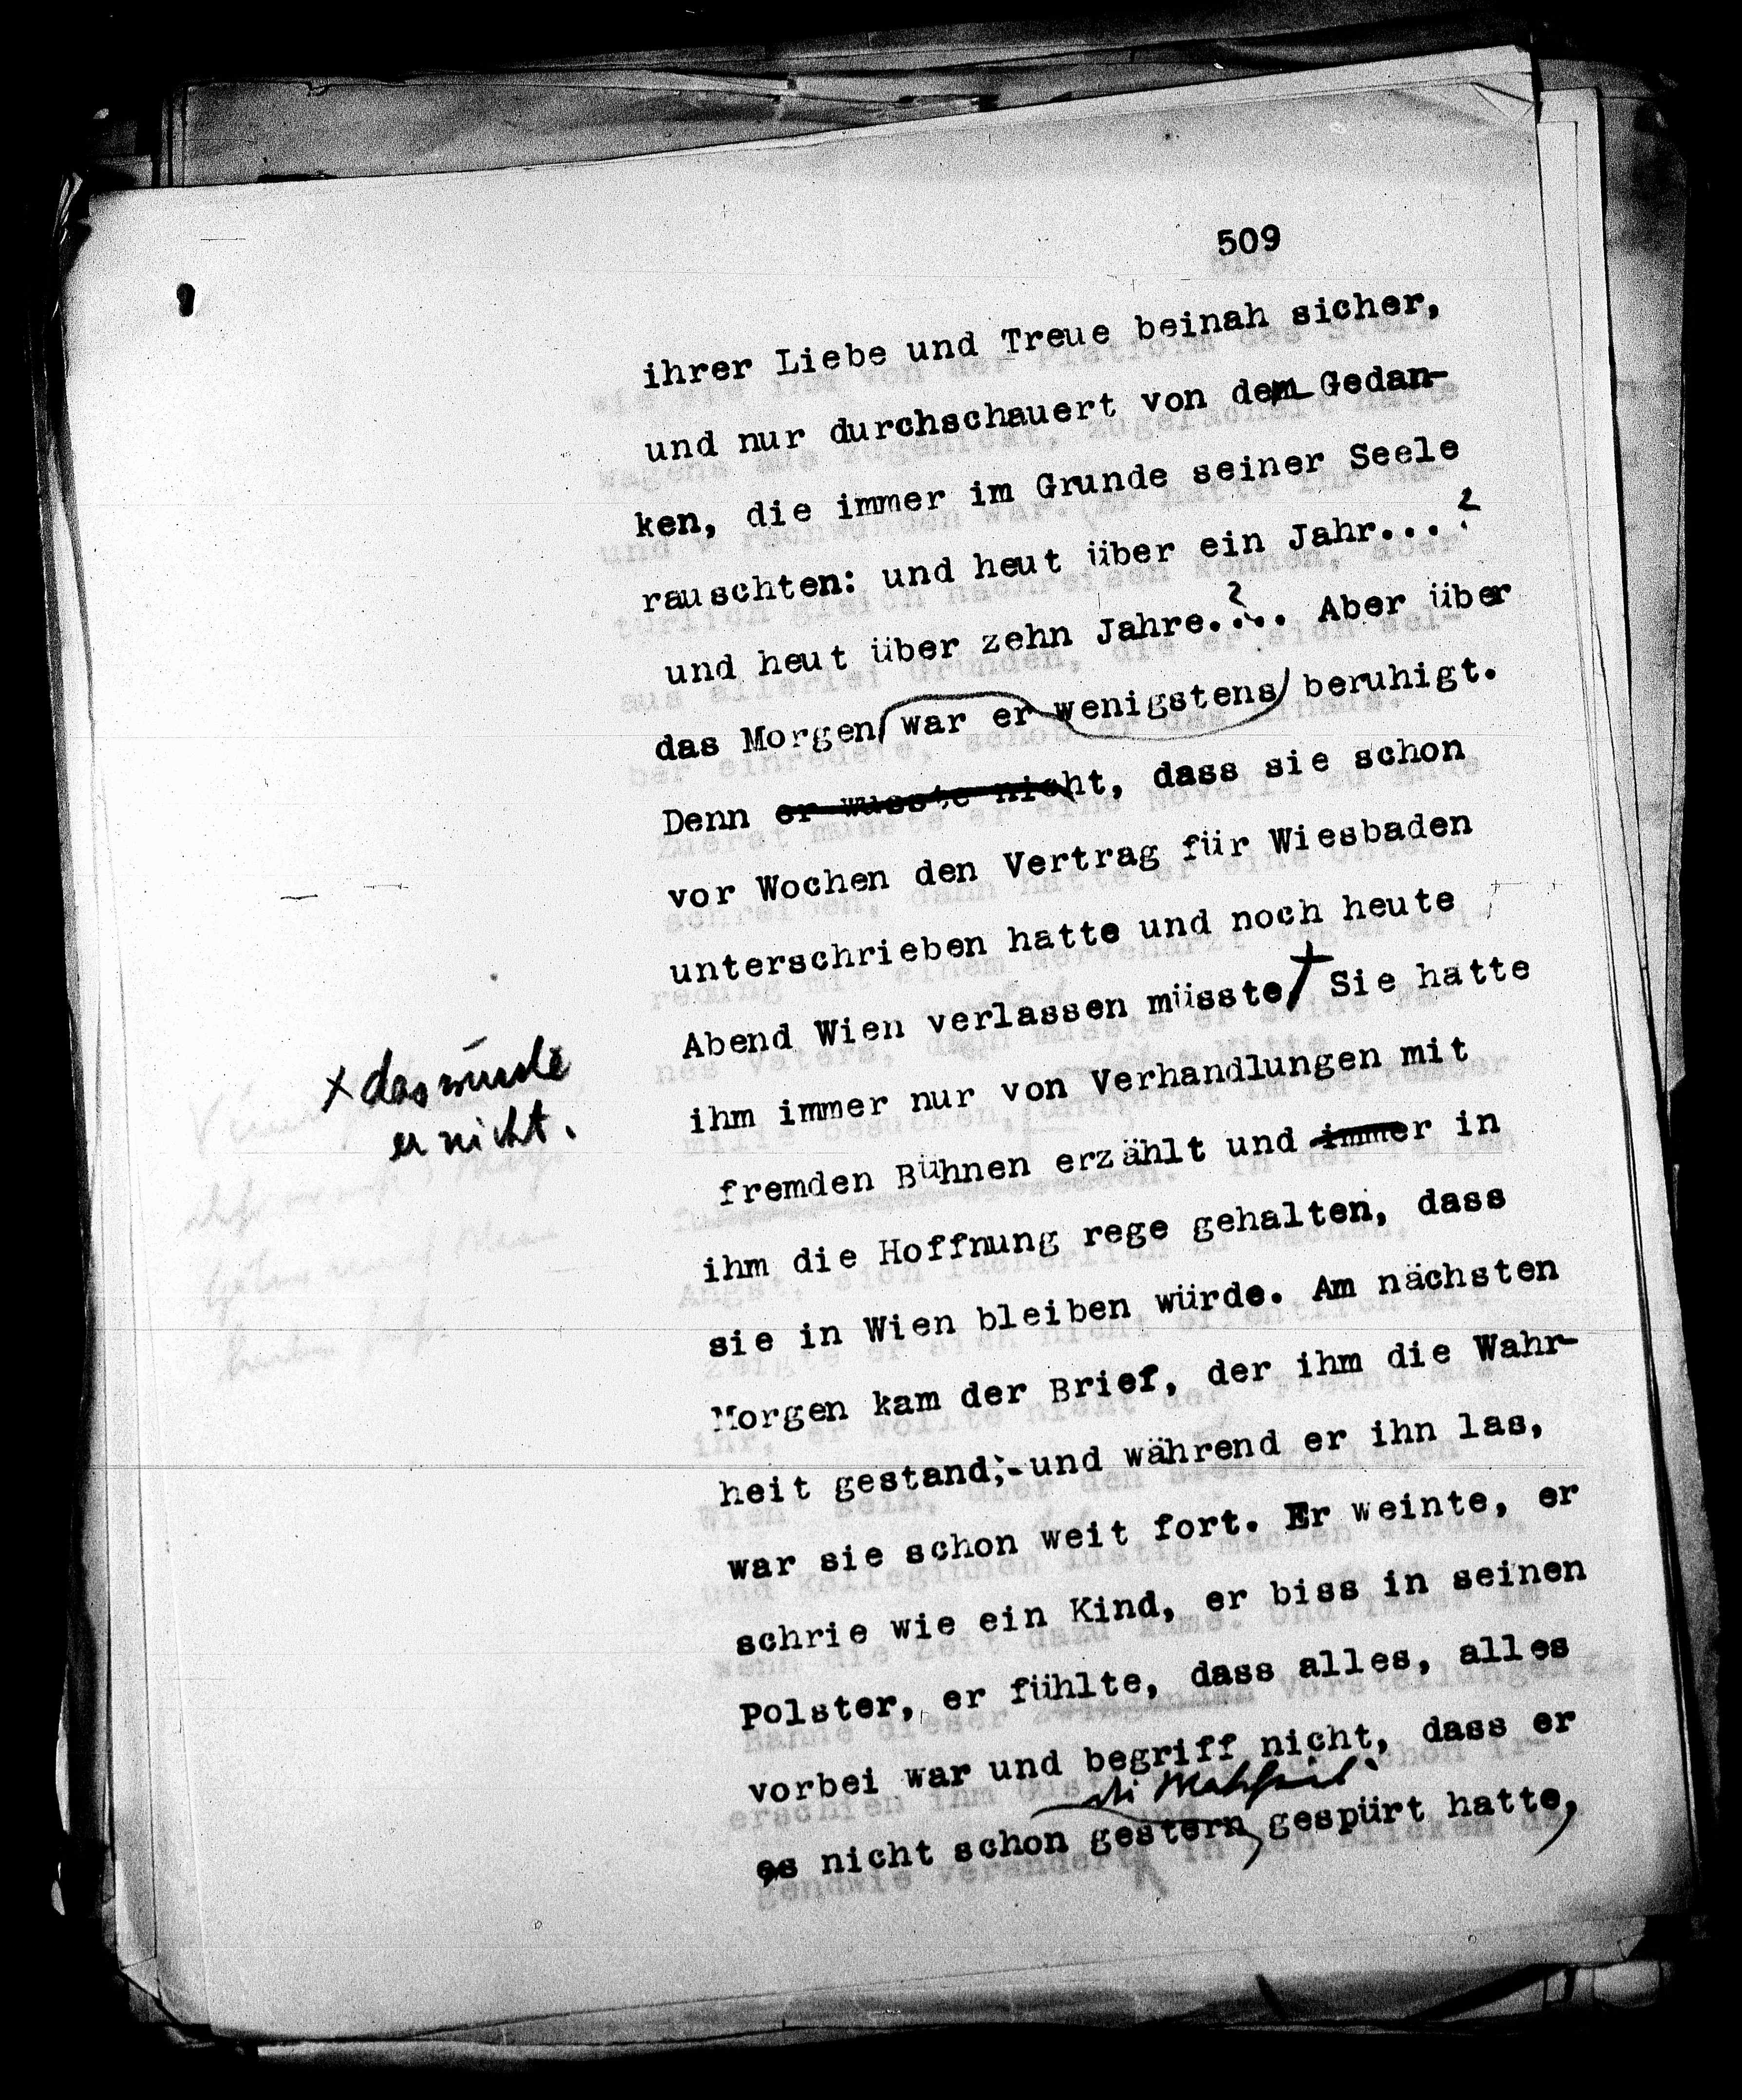 509
ihrer Liebe und Treue beinah sicher,
und nur durchschauert von den Gedan-
ken, die immer im Grunde seiner Seele
rauschten: und heut über ein Jahr...?
und heut über zehn Jahre..?.. Aber über
das Morgen war er wenigstens beruhigt.
Denn er wusste nicht, dass sie schon
vor Wochen den Vertrag für Wiesbaden
unterschrieben hatte und noch heute
Abend Wien verlassen müsste Sie hatte
ihm immer nur von Verhandlungen mit
+ das wusste
er nicht.
fremden Bühnen erzählt und immer in
ihm die Hoffnung rege gehalten, dass
sie in Wien bleiben würde. Am nächsten
Morgen kam der Brief, der ihm die Wahr-
heit gestand;-und während er ihn las,
war sie schon weit fort. Er weinte, er
schrie wie ein Kind, er biss in seinen
Polster, er fühlte, dass alles, alles
vorbei war und begriff nicht, dass er
die Wahrheit
es nicht schon gestern, gespürt hatte,